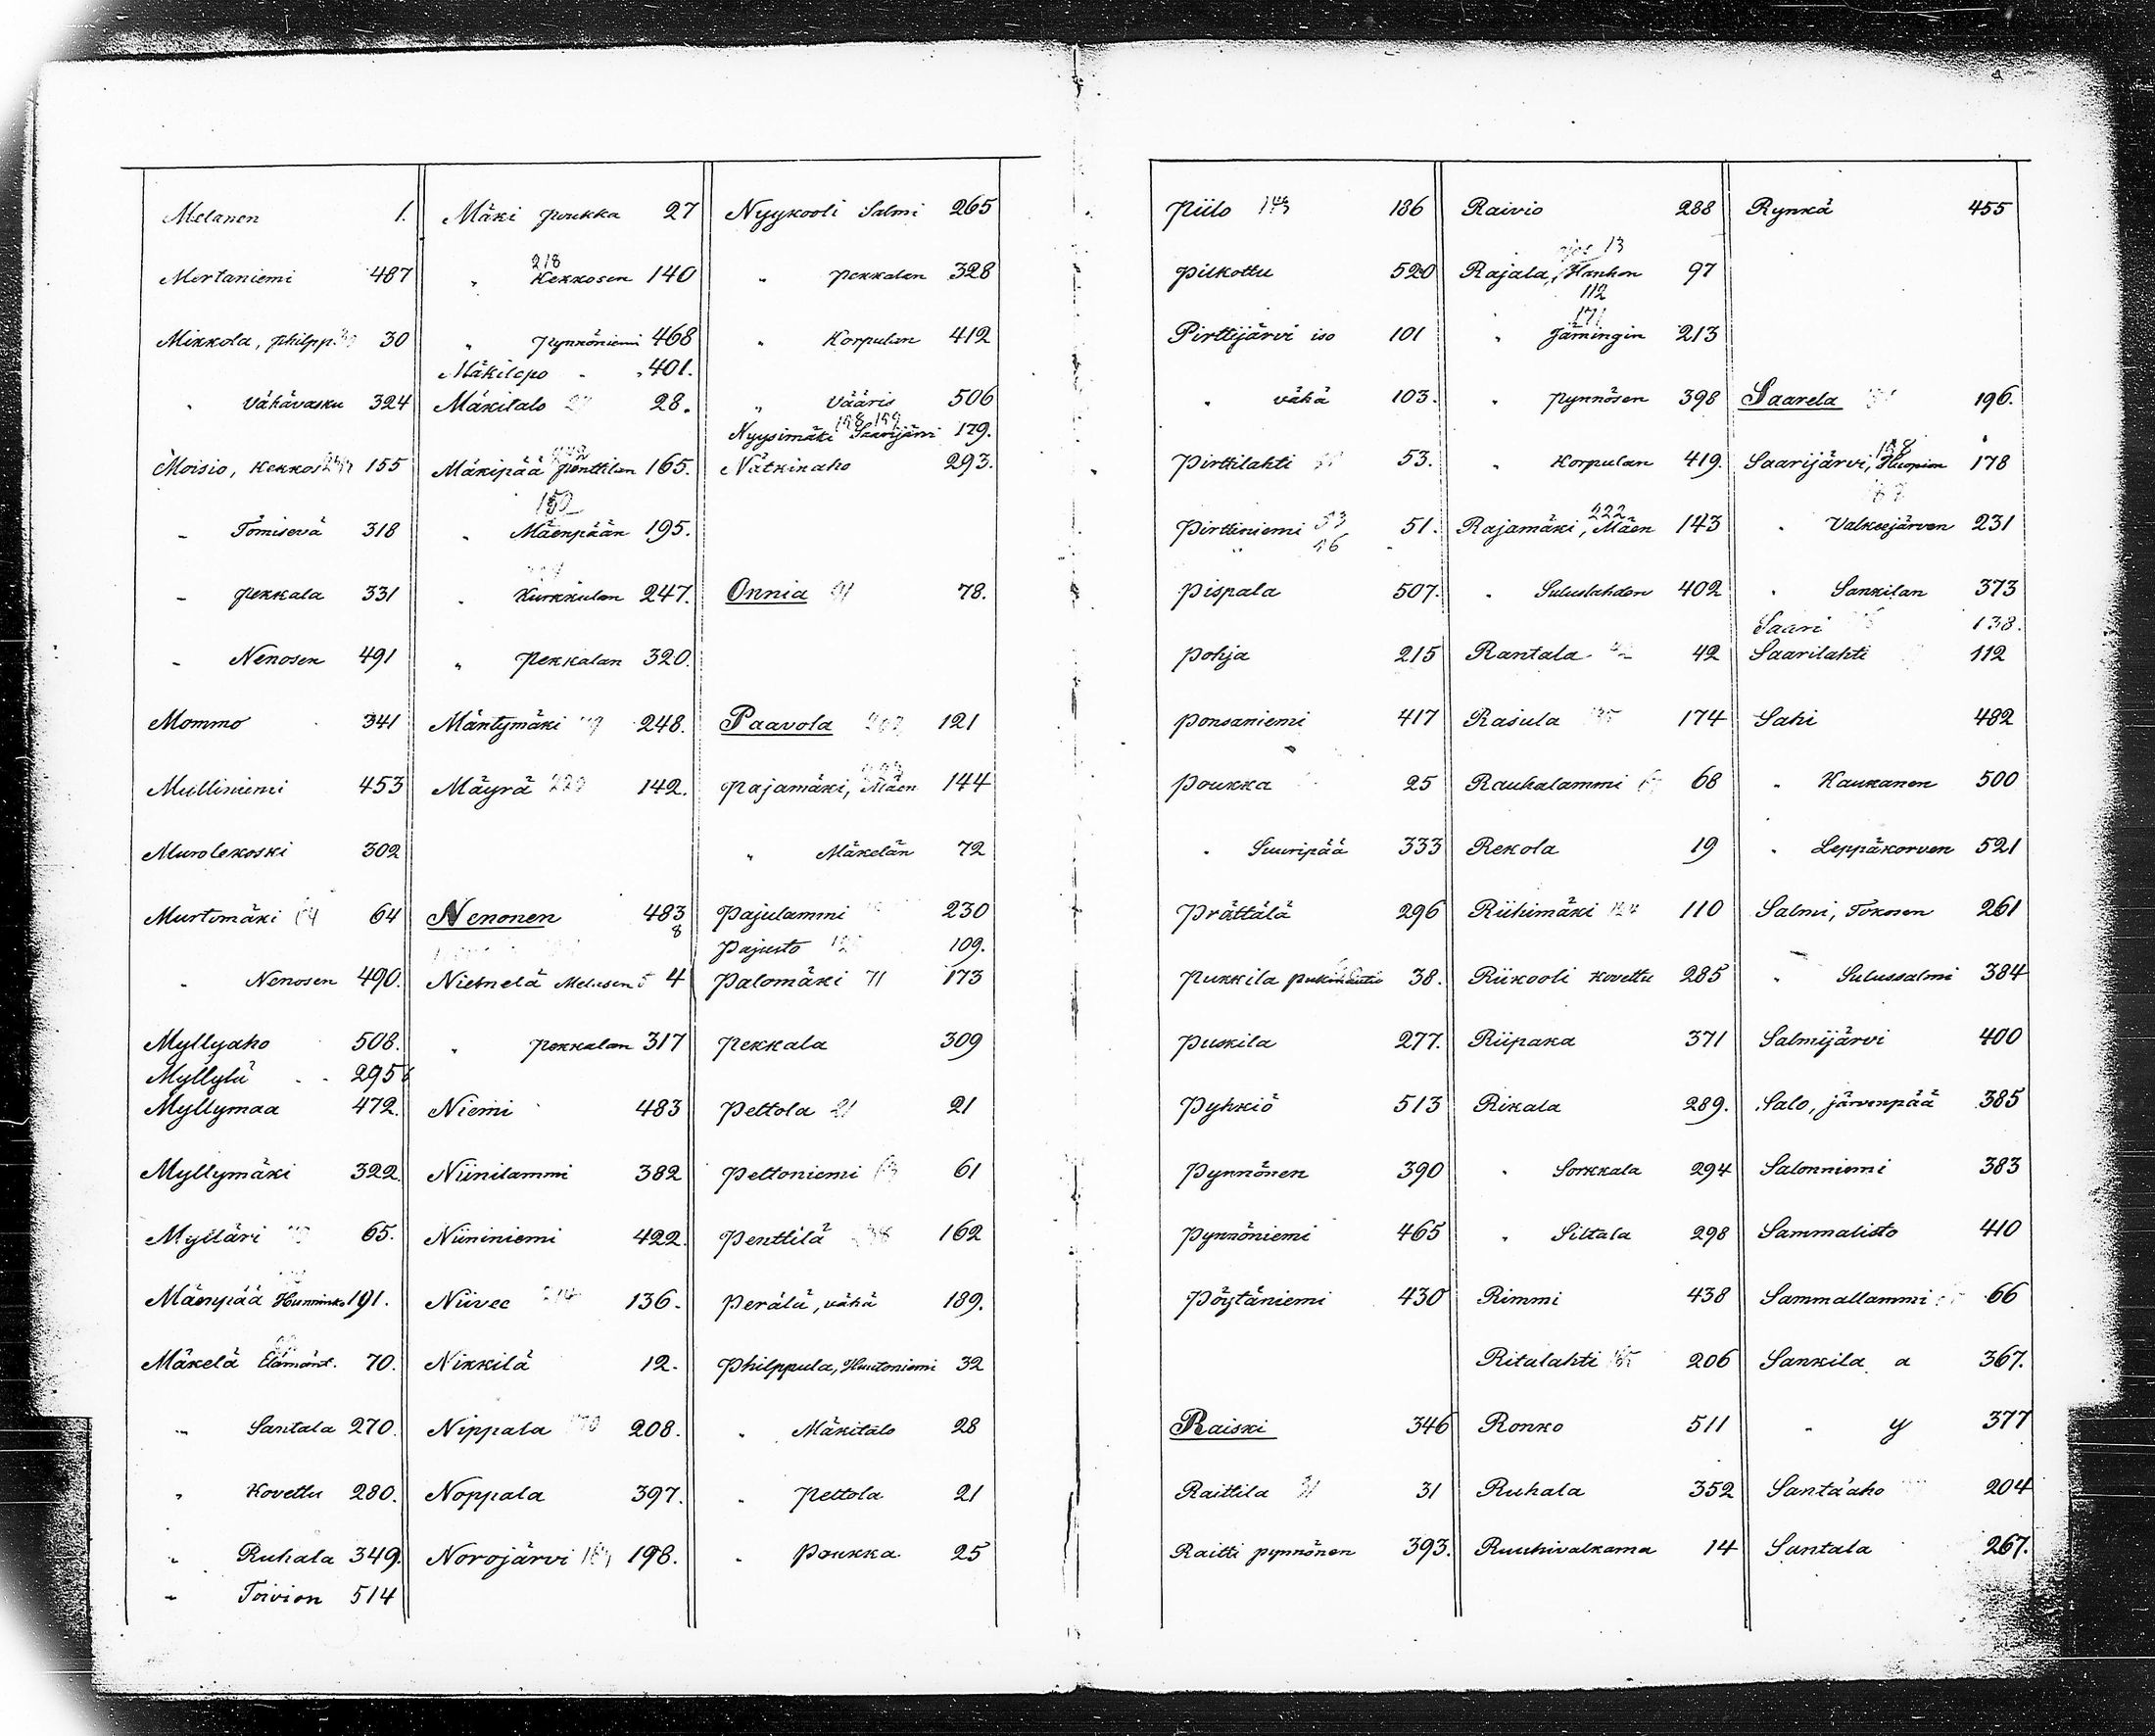 Melanen 1.
Mertaniemi 487
Mikkola, philpp. 30
" Vähävasku 324
Moisio, Kekkos 155
" Tömisevä 318
" pekkala 331
" Nenosen 491
Mommo 341
Mulliniemi 453
Murolekoski 302
Murtomäki 64 64
" Nenosen 490.
Myllyaho 508.
Myllylä 295
Myllymaa 472.
Myllymäki 322.
Mylläri 65.
Mäenpää Hunninko 191.
Mäkelä Elämänt. 70.
" Santala 270.
" Kovettu 280.
" Ruhala 349.
" Toivion 514
Mäki poukka 27
218
" Kekkosen 140
" pynnöniemi 468
Mäkilepo " 401.
Mäkitalo 28.
Mäkipää penttilan 165.
152
" Mäenpään 195.
" Kurkkulan 247.
" pekkalan 320.
Mäntymäki 248.
Mäyrä 220 142.
Nenonen 483
8
Niemelä Melasen 5 4
" pekkalan 317
Niemi 483
Niinilammi 382
Niininiemi 422.
Niivee 214 136.
Nikkilä 12.
Nippala 170 208.
Noppala 397.
Norojärvi 198.
Nyykooli Salmi 265
" pekkalan 328
" Korpulan 412
" Vääris 506
198 199
Nyysimäki Saarijärvi 179.
Nätkinaho 293.
Onnia 78.
Paavola 121
pajamäki, Mäen 144
" Mäkelän 72
pajulammi 230
pajusto 109.
palomäki 71 173
pekkala 309
peltola 21 21
peltoniemi 63 61
penttilä 162
perälä, vähä 189.
philppula, Huutoniemi 32
" Mäkitalo 28
" peltola 21
" poukka 25
piilo 143 186
pilkottu 520
Pirttijärvi iso 101
" vähä 103.
pirttilahti 53.
pirttiniemi 53 51.
46
pispala 507.
pohja 215
ponsaniemi 417
poukka 25
" Suuripää 333
prättälä 296
pukkila 38.
puskila 277.
pyhkiö 513
pynnönen 390
pynnöniemi 465
pöytäniemi 430
Raiski 346
Raittila 31 31
Raitti pynnönen 393.
Raivio 288
13
Rajala, Hanhon 97
112
171
" Jämingin 213
" pynnösen 398
" Korpulan 419.
222
Rajamäki, Mäen 143
" Suluslahden 402
Rantala 42 42
Rasula 174
Rauhalammi 68
Rekola 19
Riihimäki 124 110
Riikooli Kovettu 285
Riipaka 371
Rikala 289.
" Sorkkala 294
" Siltala 298
Rimmi 438
Ritalahti 206
Ronko 511
Ruhala 352
Ruuhivalkama 14
Rynkä 455
Saarela 196.
188
Saarijärvi, Huopion 178
" Valkeejärven 231
" Sankilan 373
Saari 138.
Saarilahti 112
Sahi 482
" Kaukanen 500
" Leppäkorven 521
Salmi, Tokosen 261
" Sulussalmi 384
Salmijärvi 400
Salo, järvenpää 385
Salonniemi 383
Sammalisto 410
Sammallammi 66
Sankila a 367.
" y 377
Santaaho 204
Santala 267.